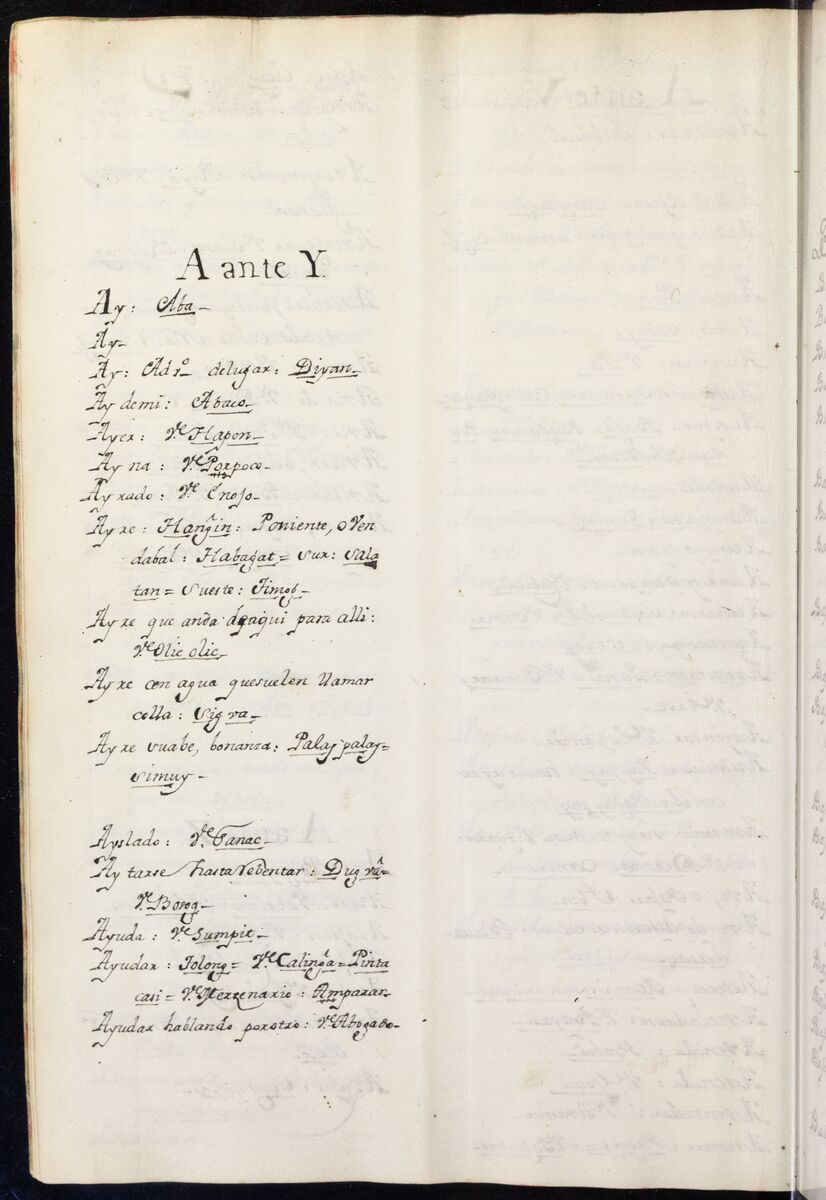 A ante Y.
Ay: Aba_
Ay_
Ay: Adr.o delugar: Diyan_
Ay demi: Abaco_
Ayer: V.e Hapon_
Ay na: V.e Porpoco_
Ayrado: V.e Enojo_
Ayre: Hang̃in: Poniente, o Ven
dabal: Habagat = Sur: Sala
tan = Sueste: Timog_
Ayre que anda deaqui para alli:
V.e Olic olic_
Ayre con agua quesuelen llamar
colla: Sigva_
Ayre suabe, bonanza: Palaypalay =
Simuy_
Ayslado: V.e Tanac_
Aytarse hasta Rebentar: Dugvâ_
V.e Borog_
Ayuda: V.e Sumpit_
Ayudar: Tolong = V.e Caling̃a = Pinta
casi = V.e Merzenario: Amparar_
Ayudar hablando porotro: V.e Abogado_